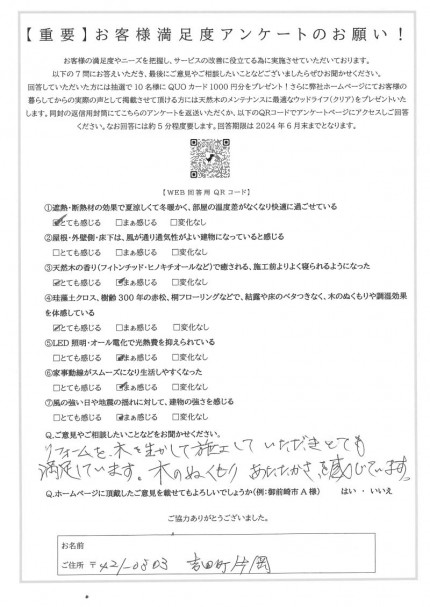 【重要】お客様満足度アンケートのお願い！
お客様の満足度やニーズを把握し、サービスの改善に役立てる為に実施させていただいております。
以下の7問にお答えいただき、最後にご意見やご相談したいことなどございましたらぜひお聞かせください。
回答していただいた方には抽選で10名様にQUOカード1000円分をプレゼント！さらに弊社ホームページにてお客様の
暮らしてからの実際の声として掲載させて頂ける方には天然木のメンテナンスに最適なウッドライフ(クリア)をプレゼントいた
します。同封の返信用封筒にてこちらのアンケートを返送いただくか、以下のQRコードでアンケートページにアクセスしご回答
ください。なお回答には約5分程度要します。回答期限は2024年6月末までとなります。
【WEB回答用QRコード】
①遮熱・断熱材の効果で夏涼しくて冬暖かく、部屋の温度差がなくなり快適に過ごせている
☑とても感じる □まぁ感じる □変化なし
②屋根・外壁側・床下は、風が通り通気性がよい建物になっていると感じる
□とても感じる ☑まぁ感じる □変化なし
③天然木の香り(フィトンチッド・ヒノキチオールなど)で癒される、施工前よりよく寝られるようになった
☑とても感じる ☑まぁ感じる □変化なし
④珪藻土クロス、樹齢300年の赤松、桐フローリングなどで、結露や床のベタつきなく、木のぬくもりや調湿効果
を体感している
☑とても感じる □まぁ感じる □変化なし
⑤LED照明・オール電化で光熱費を抑えられている
□とても感じる ☑まぁ感じる □変化なし
⑥家事動線がスムーズになり生活しやすくなった
□とても感じる ☑まぁ感じる □変化なし
⑦風の強い日や地震の揺れに対して、建物の強さを感じる
□とても感じる ☑まぁ感じる □変化なし
Q.ご意見やご相談したいことなどをお聞かせください。
リフォームを、木を生かして施工して いただきとても
満足しています。木のぬくもり あたたかさを感じています。
Q.ホームページに頂戴したご意見を載せてもよろしいでしょうか(例:御前崎市A様) はい ・ いいえ
ご協力ありがとうございました。
お名前
ご住所 〒421-0303 吉田町片岡